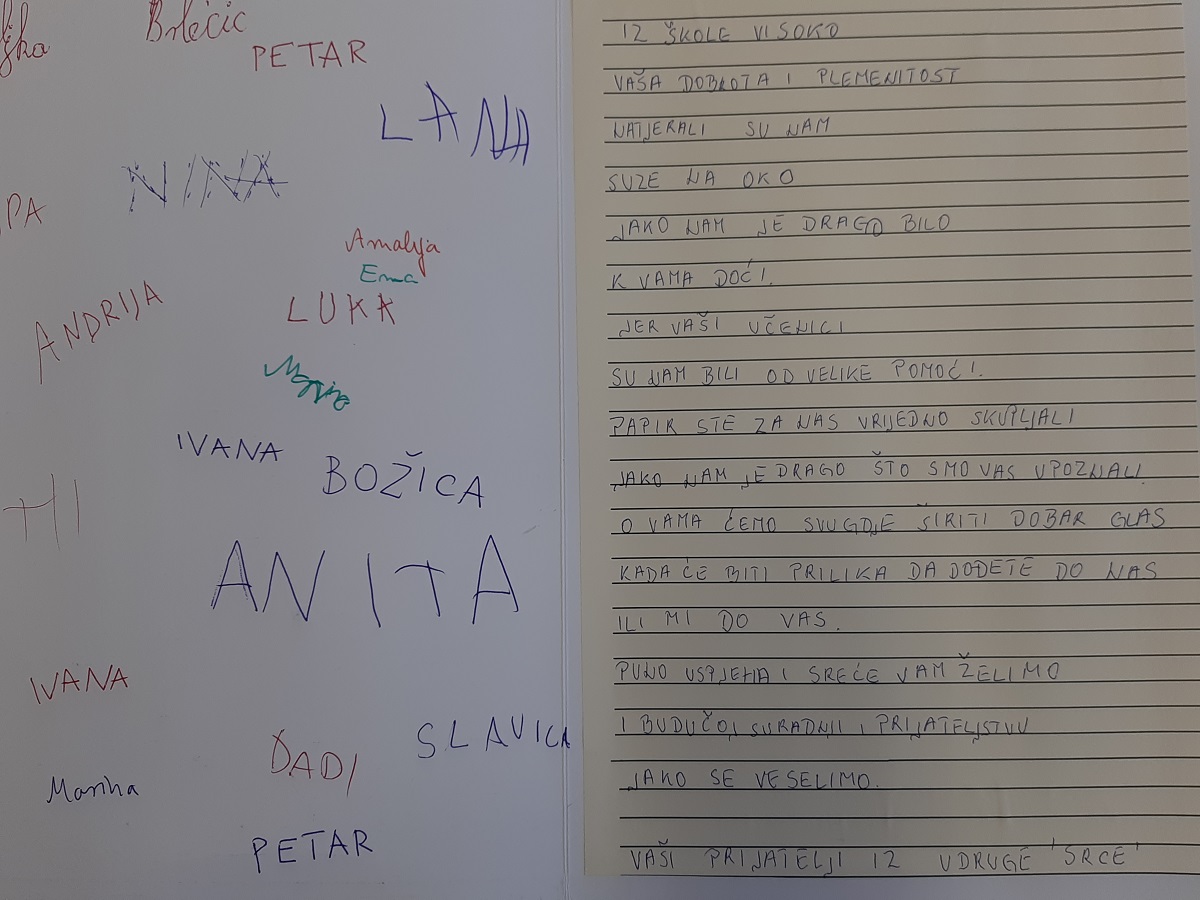 Brlečić
PETAR
LANA
NINA
PA
Amalija
Ema
LUKA
ANDRIJA
IVANA
BOŽICA
ANITA
IVANA
SLAVICA
DADI
Marina
PETAR
IZ ŠKOLE VISOKO
VAŠA DOBROTA I PLEMENITOST
NATJERALI SU NAM
SUZE NA OKO
JAKO NAM JE DRAGO BILO
K VAMA DOĆI.
JER VAŠI UČENICI
SU NAM BILI OD VELIKE POMOĆI.
PAPIR STE ZA NAS VRIJEDNO SKUPLJALI
JAKO NAM JE DRAGO ŠTO SMO VAS UPOZNALI.
O VAMA ĆEMO SVUGDJE ŠIRITI DOBAR GLAS
KADA ĆE BITI PRILIKA DA DOĐETE DO NAS
ILI MI DO VAS.
PUNO USPJEHA I SREĆE VAM ŽELIMO
I BUDUČOJ SURADNJI I PRIJATELJSTVU
JAKO SE VESELIMO.
VAŠI PRIJATELJI IZ UDRUGE 'SRCE'